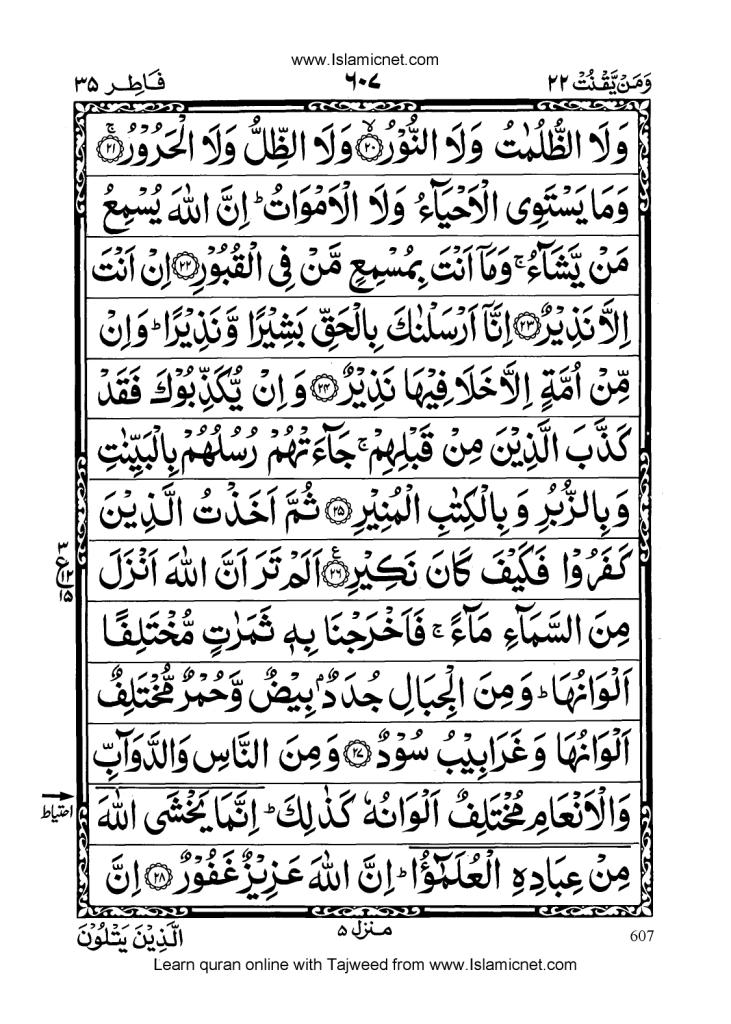 www.Islamicnet.com
وَمَنۡ يَّقۡنُتۡ ٢٢ ٦٠٧ فَاطِر ٣٥
وَلَا الظُّلُمٰتُ وَلَا النُّوۡرُۙ ﴿٢٠﴾ وَلَا الظِّلُّ وَلَا الۡحَرُوۡرُۚ ﴿٢١﴾
وَمَا يَسۡتَوِى الۡاَحۡيَآءُ وَلَا الۡاَمۡوَاتُؕ اِنَّ اللّٰهَ يُسۡمِعُ
مَنۡ يَّشَآءُۚ وَمَآ اَنۡتَ بِمُسۡمِعٍ مَّنۡ فِى الۡقُبُوۡرِ ﴿٢٢﴾ اِنۡ اَنۡتَ
اِلَّا نَذِيۡرٌ ﴿٢٣﴾ اِنَّآ اَرۡسَلۡنٰكَ بِالۡحَقِّ بَشِيۡرًا وَّنَذِيۡرًاؕ وَاِنۡ
مِّنۡ اُمَّةٍ اِلَّا خَلَا فِيۡهَا نَذِيۡرٌ ﴿٢٤﴾ وَاِنۡ يُّكَذِّبُوۡكَ فَقَدۡ
كَذَّبَ الَّذِيۡنَ مِنۡ قَبۡلِهِمۡۚ جَآءَتۡهُمۡ رُسُلُهُمۡ بِالۡبَيِّنٰتِ
وَبِالزُّبُرِ وَبِالۡكِتٰبِ الۡمُنِيۡرِ ﴿٢٥﴾ ثُمَّ اَخَذۡتُ الَّذِيۡنَ
كَفَرُوۡا فَكَيۡفَ كَانَ نَكِيۡرِ ﴿٢٦﴾ع اَلَمۡ تَرَ اَنَّ اللّٰهَ اَنۡزَلَ
٣
ع
١٢
١٥
مِنَ السَّمَآءِ مَآءًۚ فَاَخۡرَجۡنَا بِهٖ ثَمَرٰتٍ مُّخۡتَلِفًا
اَلۡوَانُهَاؕ وَمِنَ الۡجِبَالِ جُدَدٌۢ بِيۡضٌ وَّحُمۡرٌ مُّخۡتَلِفٌ
اَلۡوَانُهَا وَغَرَابِيۡبُ سُوۡدٌ ﴿٢٧﴾ وَمِنَ النَّاسِ وَالدَّوَآبِّ
وَالۡاَنۡعَامِ مُخۡتَلِفٌ اَلۡوَانُهٗ كَذٰلِكَؕ اِنَّمَا يَخۡشَى اللّٰهَ
احتیاط
مِنۡ عِبَادِهِ الۡعُلَمٰٓؤُاؕ اِنَّ اللّٰهَ عَزِيۡزٌ غَفُوۡرٌ ﴿٢٨﴾ اِنَّ
607 مَنزل ٥ الَّذِيۡنَ يَتۡلُوۡنَ
Learn quran online with Tajweed from www.Islamicnet.com